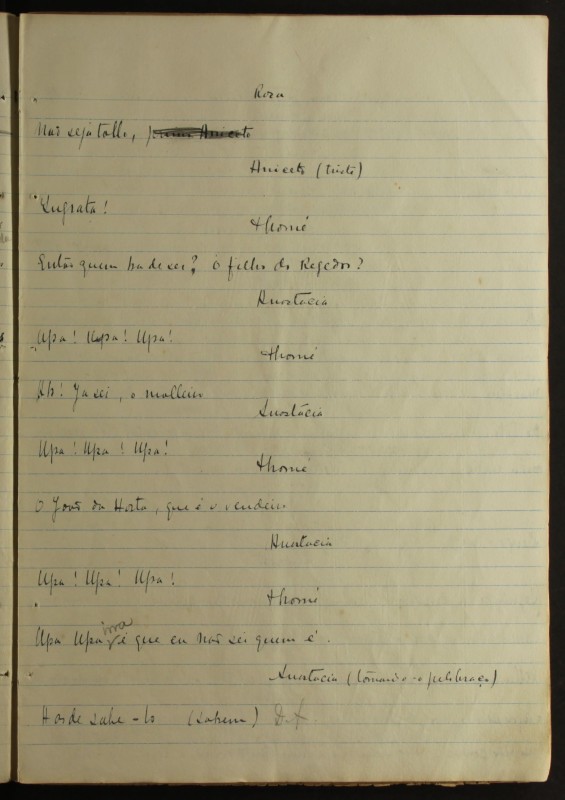 Roza
Não seja tollo,
Aniceto (triste)
Ingrata!
Thomé
Então quem ha de ser? O filho do Regedor?
Anastacia
Upa! Upa! Upa!
Thomé
Ah! Ja sei, o molleiro
Anastácia
Upa! Upa! Upa!
Thomé
O João da Horta, que é o vendeiro
Anastacia
Upa! Upa! Upa!
Thomé
Upa Upa irra é que eu não sei quem é.
Anastacia (tomando-o pelo braço)
Hasde sabe-lo (Sahem)